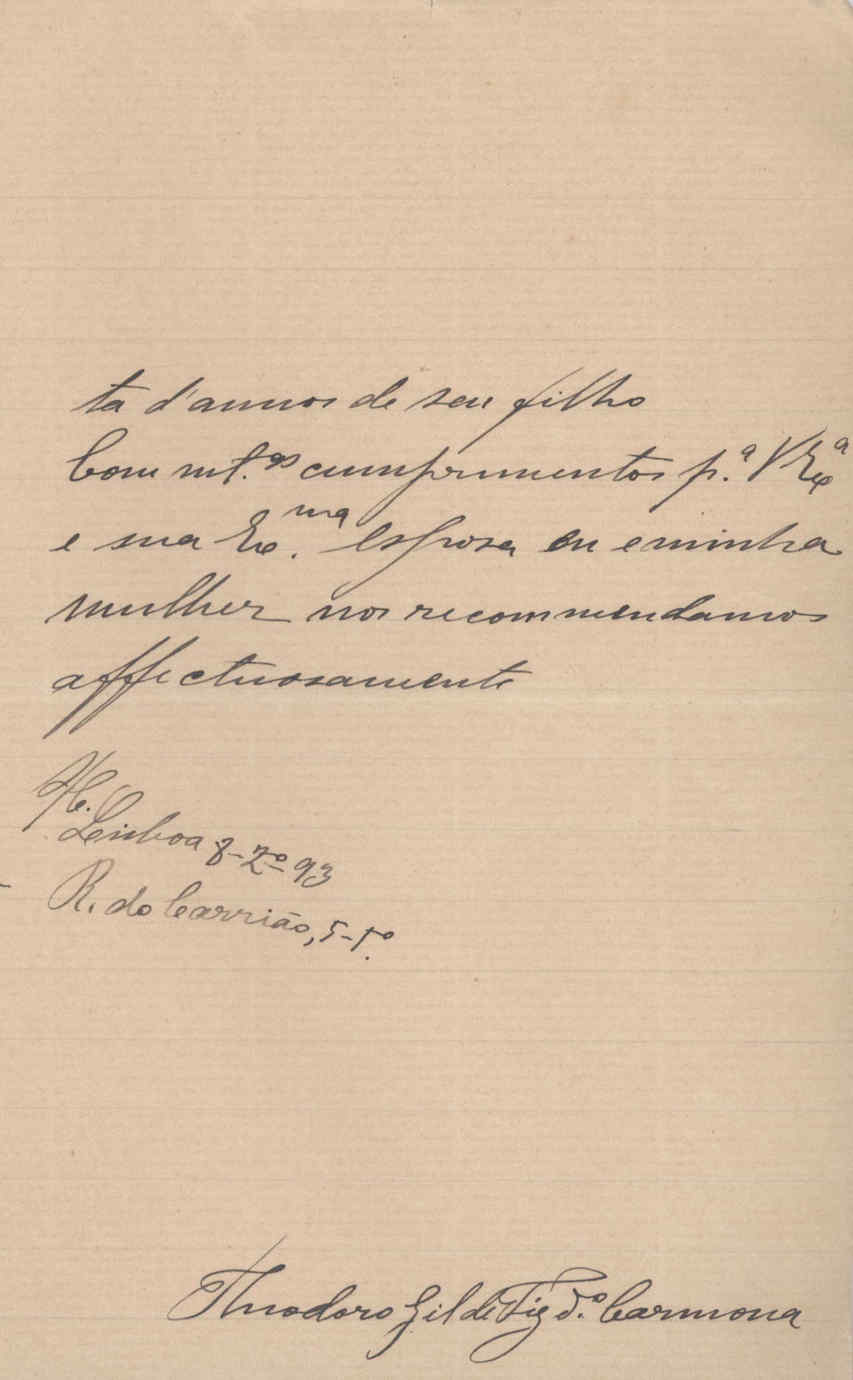 ta d'annos de seu filho
Com mt.os cumprimentos p.ª V Exª
e sua Ex.ma Esposa eu e minha
mulher nos recommendamos
affectuosamente
Lisboa 8-2º-93
R. do Carrião, 5-1º
Theodoro Gil de Figd.º Carmona